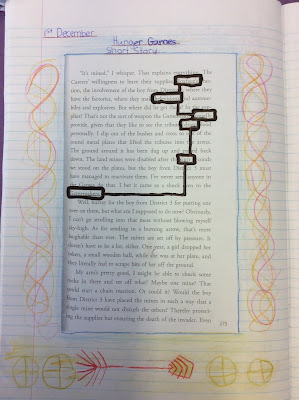 1st December
Hunger Games
Short Story
"It's mined," I whisper. That explains everything. The
Careers' willingness to leave their supplies
tion, the involvement of the boy from District where they
have the factories, where they and automo-
biles and explosives. But where did he get In the sup-
plies? That's not the sort of weapon the
provide, given that they like to see the
personally. I slip out of the bushes and cross to of the
round metal plates that lifted the tributes into the arena.
The ground around it has been dug up and back
down. The land mines were disabled after the seconds
we stood on the plates, but the boy from District 3 must
have managed to reactivate them. I've never seen anyone in
the Games do that. I bet it came as a shock to the
Well, hurray for the boy from District 3 for putting one
over on them, but what am I supposed to do now? Obviously,
I can't go strolling into that mess without blowing myself
sky-high. As for sending in a burning arrow, that's more
laughable than ever. The mines are set off by pressure. It
doesn't have to be a lot, either. One year, a girl dropped her
token, a small wooden ball, while she was at her plate, and
they literally had to scrape bits of her off the ground.
My arm's pretty good, I might be able to chuck some
rocks in there and set off what? Maybe one mine? That
could start a chain reaction. Or could it? Would the boy
from District 3 have placed the mines in such a way that a
single mine would not disturb the others? Thereby protect-
ing the supplies but ensuring the death of the invader. Even
219